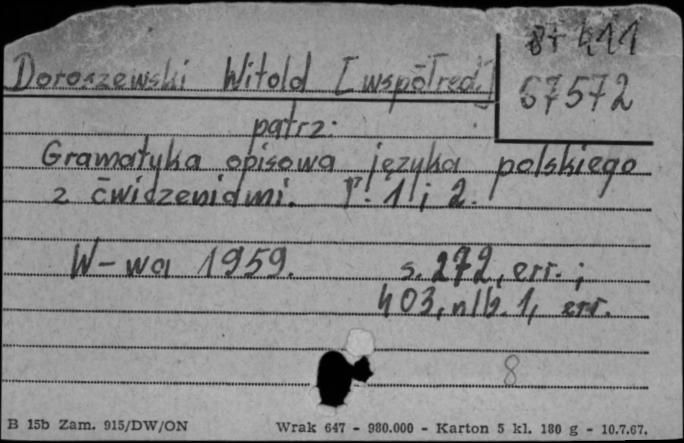 87 411
67572
Doroszewski Witold [współred.]
patrz:
Gramatyka opisowa języka polskiego
z ćwiczeniami. T. 1 i 2.
W-wa 1959. s. 272, err. ;
403, nlb. 1, err.
8
B 15b Zam. 915/DW/ON Wrak 647 - 980.000 - Karton 5 kl. 180 g - 10.7.67.